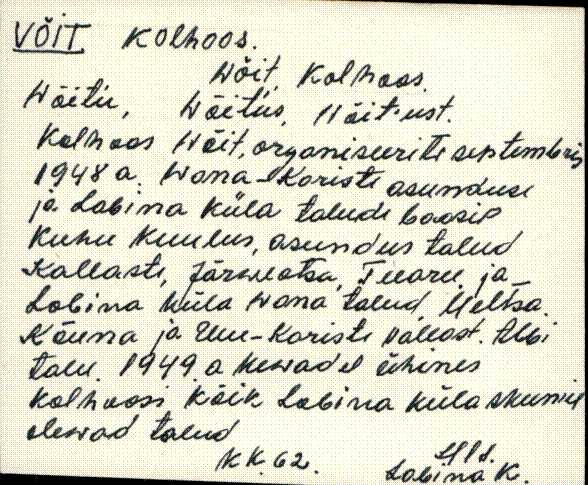 VÕIT Kolhoos.
Wõit, Kolhoos.
Wõitu, Wõitus, Wõit'ust.
Kolhoos Wõit, organiseeriti septembris
1948 a. Wana-Koriste asunduse
ja Labina küla talude baasil
kuhu kuulus, asundus talud
Kallaste, Järweotsa, Tuaru ja
Labina küla wana talud, Meltsa.
Kõuna ja Uue-Koriste vallast. Albi
talu. 1949 a kewadel ühines
kolhoosi kõik Labina küla
olewad talud
KK. 62.
Labina K.